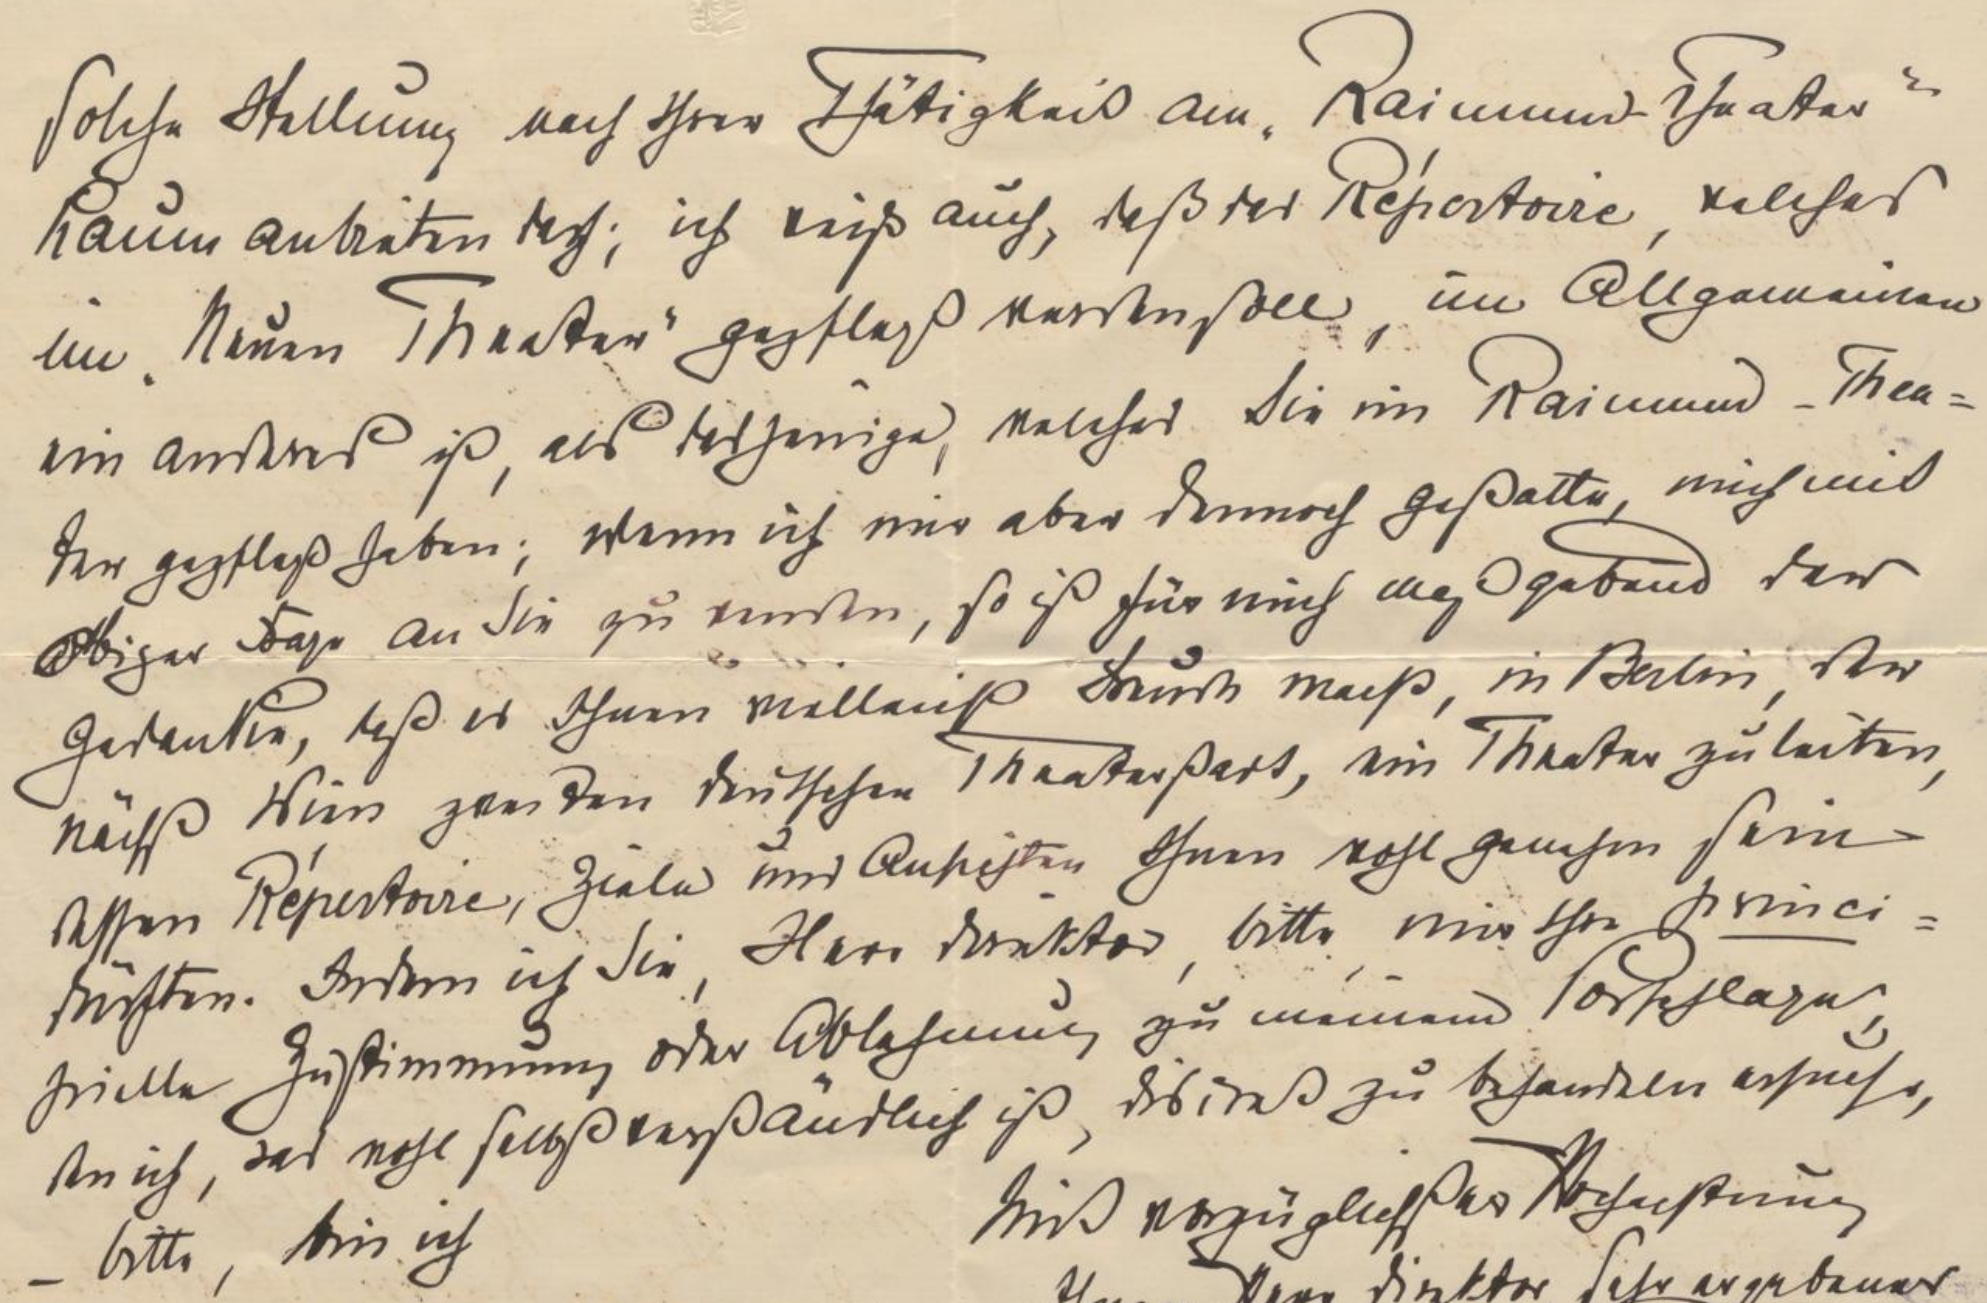 solche Stellung nach Ihrer Thätigkeit am „Raimund-Theater“
kaum anbieten darf; ich weiß auch, daß das Repertoire, welches
im „Neuen Theater“ gepflegt werden soll, im Allgemeinen
ein anderes ist, als dasjenige, welches Sie im Raimund-Thea=
ter gepflegt haben; wenn ich mir aber dennoch gestatte, mich mit
obiger Frage an Sie zu wenden, so ist für mich maßgebend der
Gedanke, daß es Ihnen vielleicht Freude macht, in Berlin, der
nächst Wien zweiten deutschen Theaterstadt, ein Theater zu leiten,
dessen Répertoire, Ziele und Ansichten Ihnen wohl genehm sein
dürften. Indem ich Sie, Herr Direktor, bitte, mir Ihre princi=
pielle Zustimmung oder Ablehnung zu meinem Vorschlage,
den ich, was wohl selbstverständlich ist, discret zu behandeln ersuche,
– bitte, bin ich
Mit vorzüglichster Hochachtung
Herr Direktor sehr ergebener